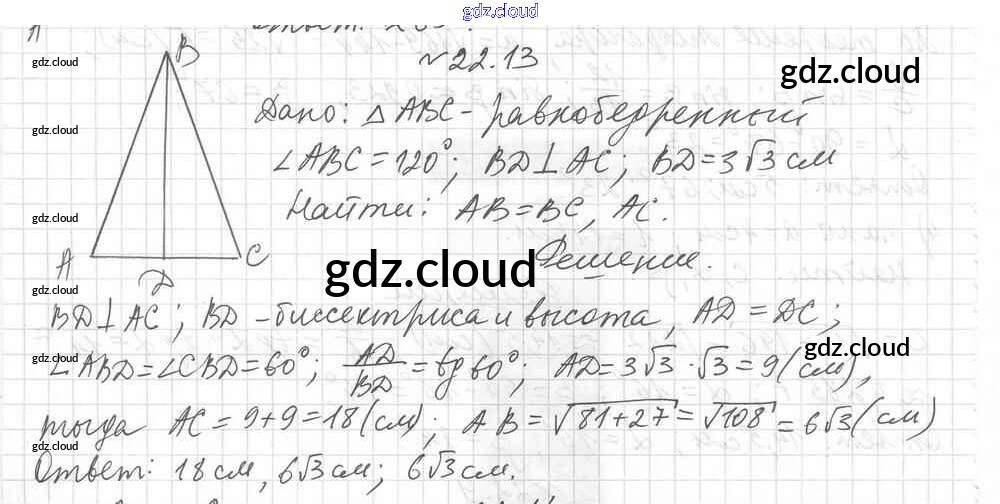 gdz.cloud
№22.13
gdz.cloud
gdz.cloud
B
Дано: △ABC - равнобедренный
gdz.cloud
∠ABC = 120°; BD⊥AC; BD = 3√3 см
Найти: AB = BC, AC.
gdz.cloud
A C
D
gdz.cloud
Решение.
gdz.cloud
BD⊥AC; BD - биссектриса и высота, AD = DC;
gdz.cloud
gdz.cloud
∠ABD = ∠CBD = 60°; AD/BD = tg 60°; AD = 3√3 · √3 = 9 (см),
тогда AC = 9 + 9 = 18 (см); AB = √81+27 = √108 = 6√3 (см)
gdz.cloud
Ответ: 18 см, 6√3 см; 6√3 см.